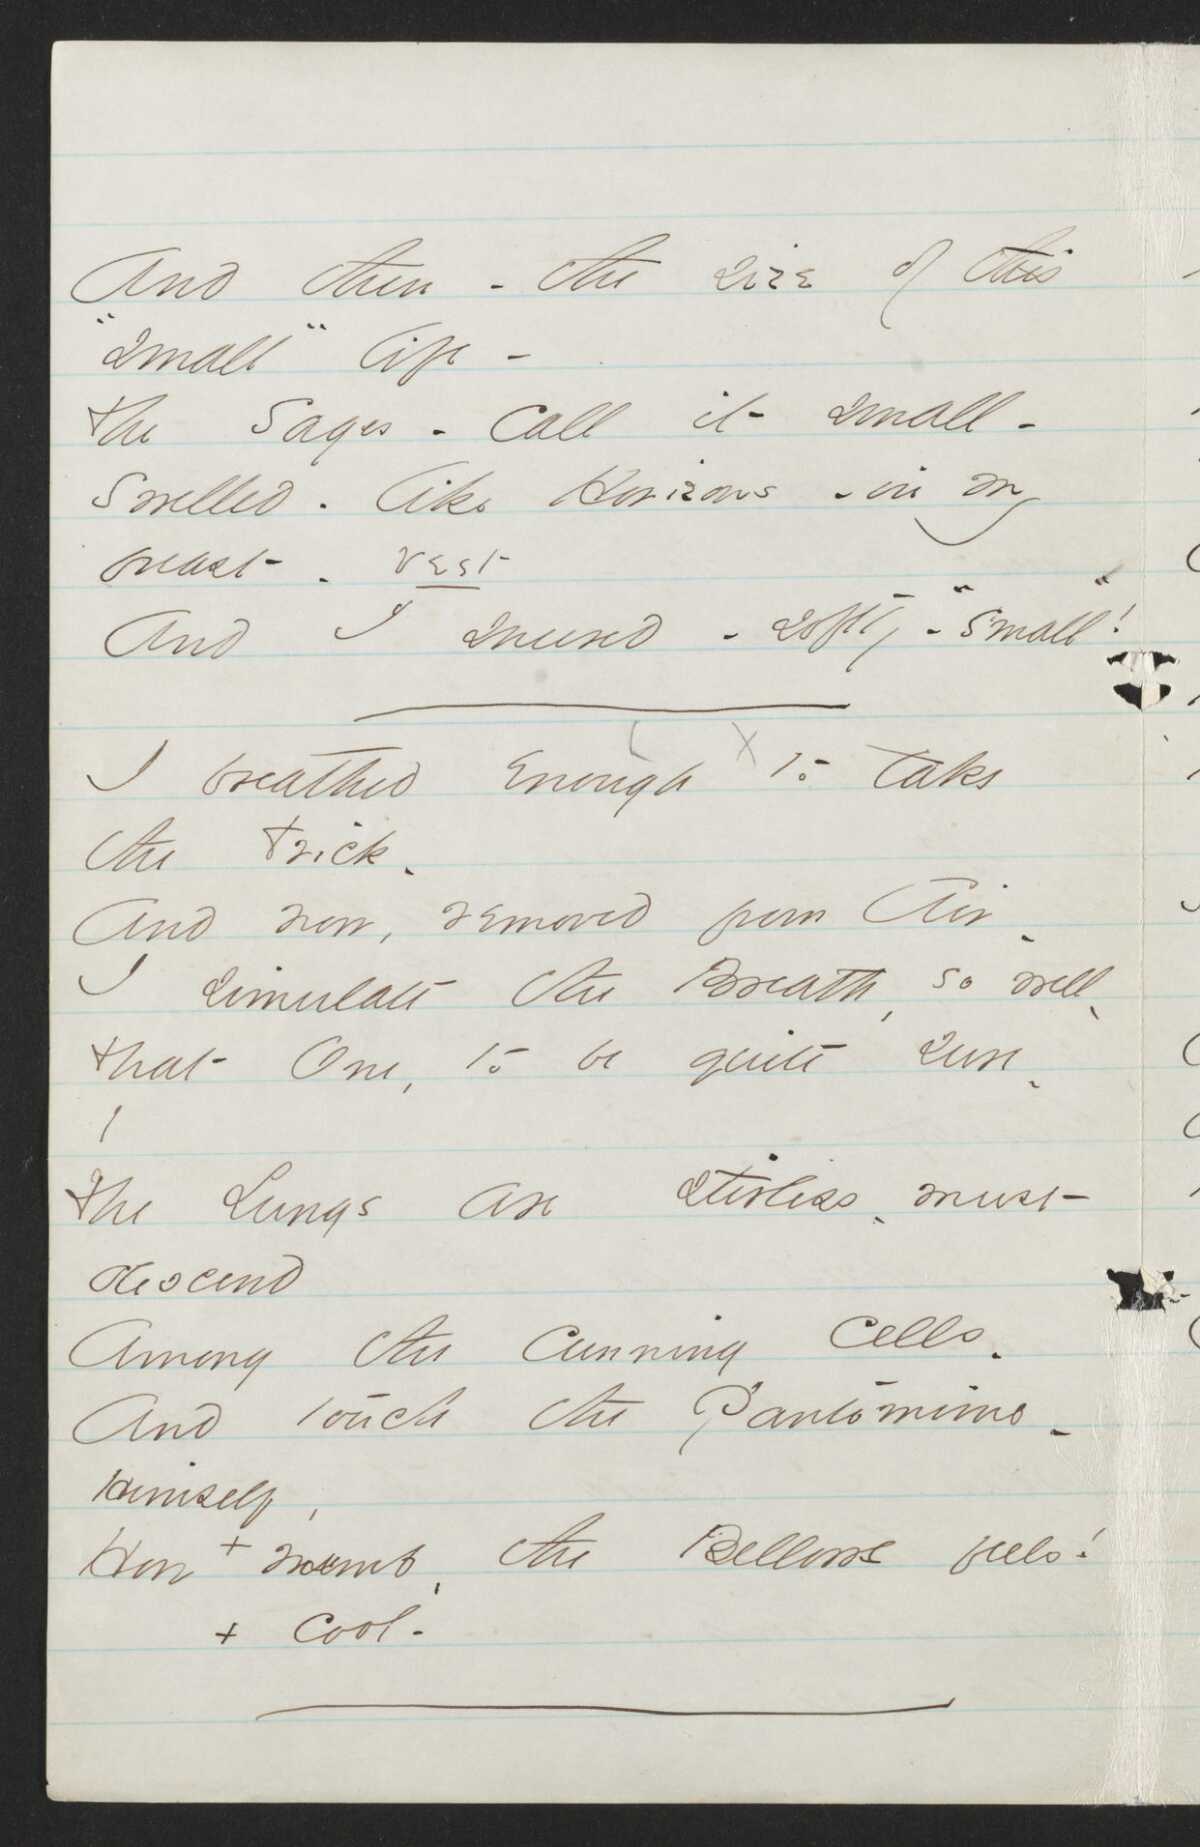 And then - the size of this
"small" life -
The Sages - call it small -
Swelled - like Horizons - in my
breast - vest
And I sneered - softly - "Small"!
I breathed enough to take
the Trick -
And now, removed from Air -
I simulate the Breath, so well -
That One, to be quite sure -
The Lungs are stirless - must
descend
Among the cunning cells -
And touch the Pantomime -
Himself,
How + numb, the Bellows feels!
+ cool -